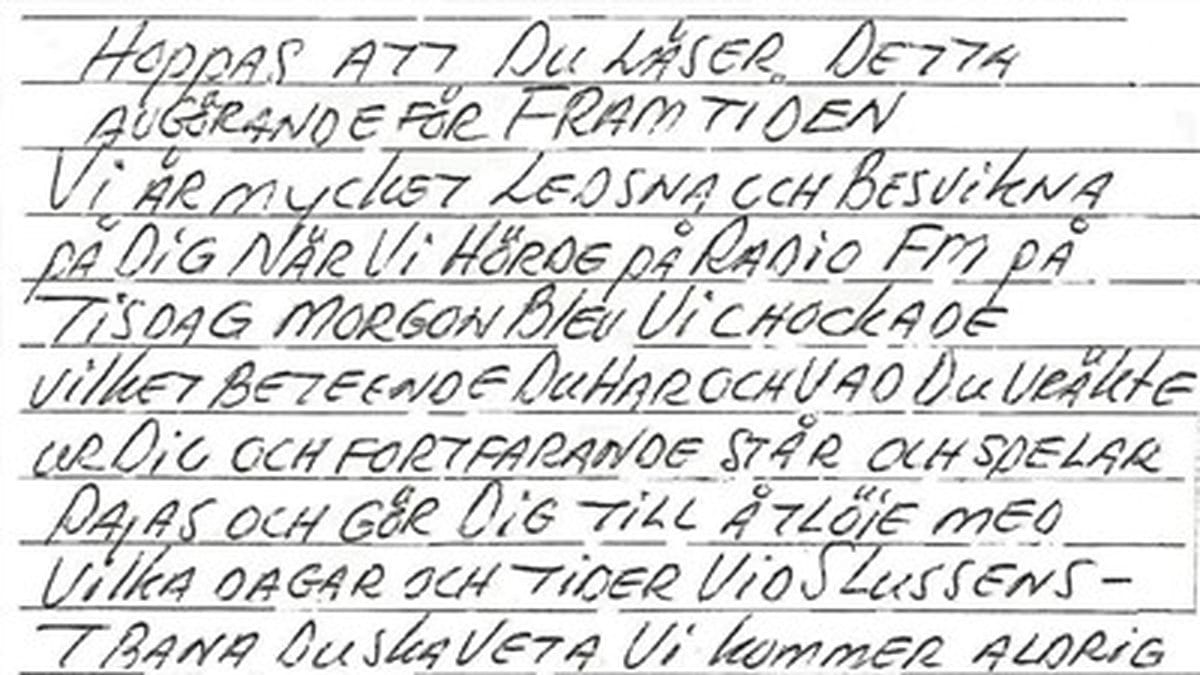 HOPPAS ATT DU LÄSER DETTA
AVGÖRANDE FÖR FRAMTIDEN
Vi ÄR mycket LEDSNA OCH BESVIKNA
PÅ DiG NÄR Vi HÖRDE PÅ RADiO FM PÅ
TiSDAG MORGON BLEV Vi CHOCKADE
VilKET BETEENDE DU HAR OCH VAD DU VRÄKTE
UR DiG OCH FORTFARANDE STÅR OCH SPELAR
PAJAS OCH GÖR DiG TiLL ÅTLÖJE MED
VilKA DAGAR OCH TiDER ViD SLUSSENS-
TRANA DU SKA VETA Vi KOMMER ALDRiG